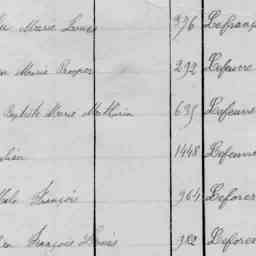 Marie Louis 996 Lefranç
Marie Prosper 292 Lefeuvre
Baptiste Marie Mathurin 635 Lefeuvre
1448 Lefeuvre
Malo François 964 Lefores
François Louis 982 Lefores